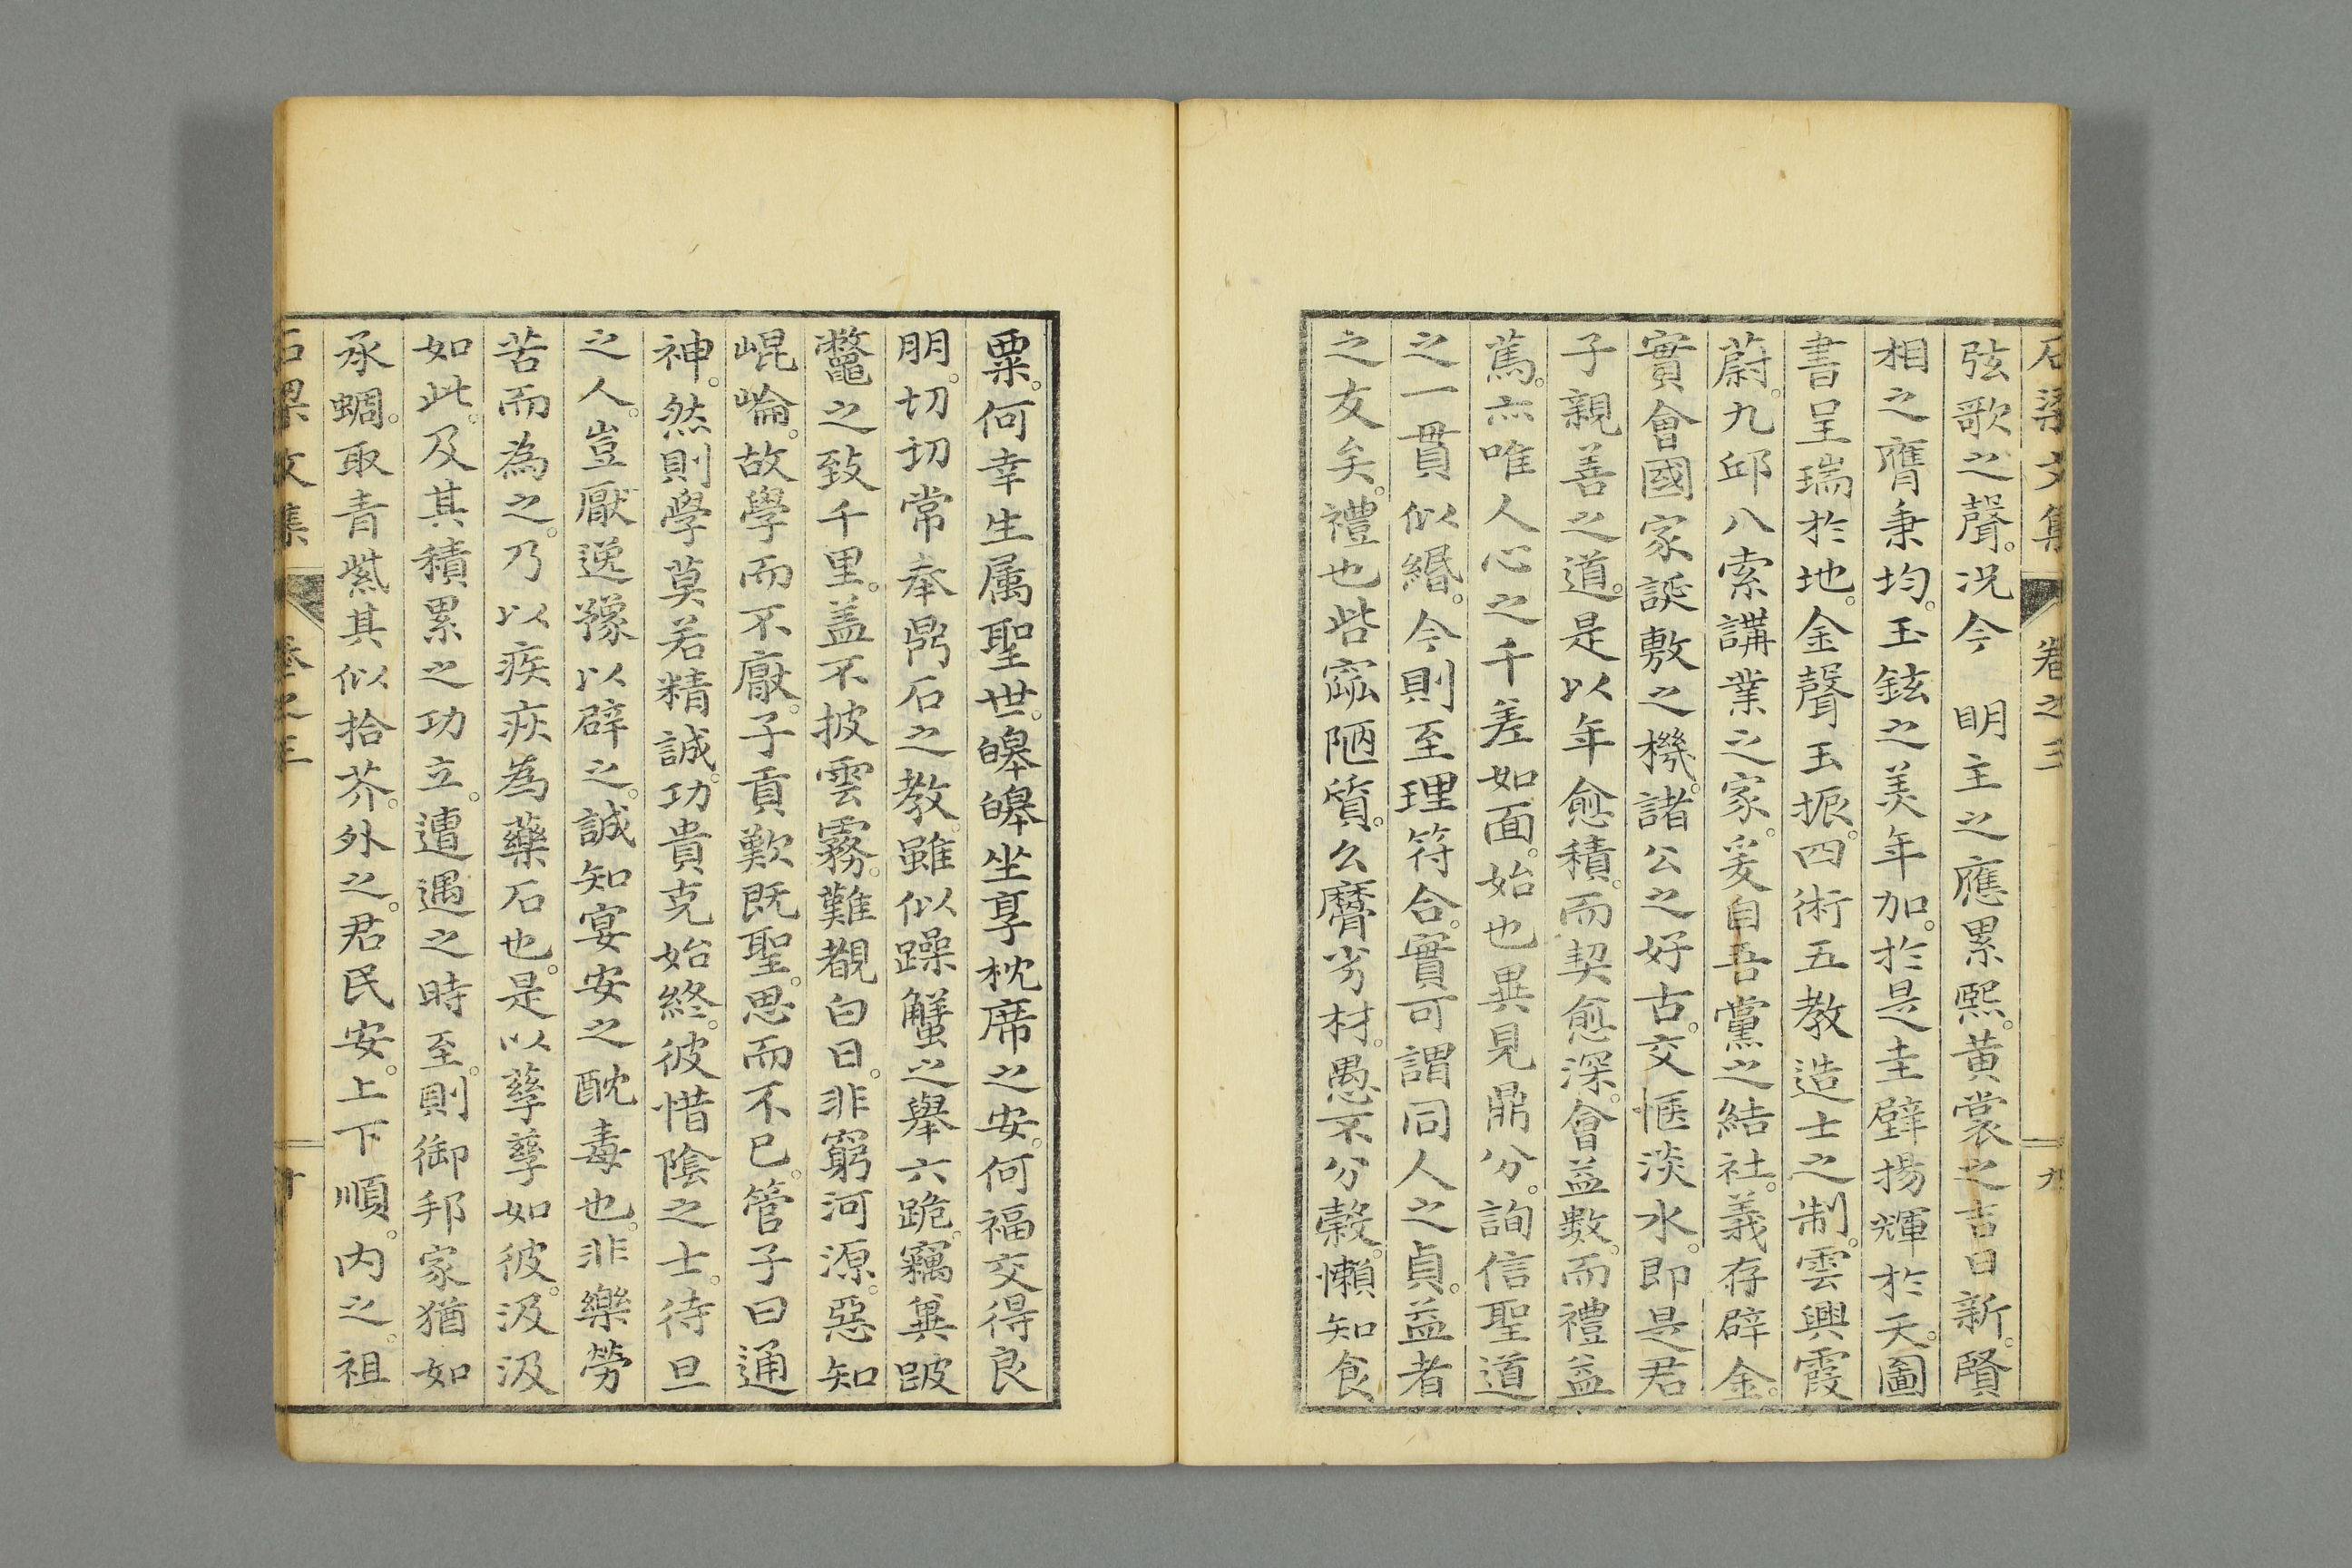 石梁文集 卷之三 九
弦歌之聲。况今 明主之應累熙。黄裳之吉日新。賢
相之膺秉均。玉鉉之美年加。於是圭璧揚輝於天。圖
書呈瑞於地。金聲玉振。四術五教造士之制。雲興霞
蔚。九邱八索講業之家。爰自吾黨之結社。義存辟金。
實會國家誕敷之機。諸公之好古。交惬淡水。即是君
子親善之道。是以年愈積。而契愈深。會益數。而禮益
篤。亦唯人心之千差如面。始也異見鼎分。詢信聖道
之一貫似緡。今則至理符合。實可謂同人之貞。益者
之友矣。禮也呰窳陋質。么麿劣材。愚不分菽。懶知食
粟。何幸生属聖世。皥皥坐享枕席之安。何福交得良
朋。切切常奉鼎石之教。雖似躁蟹之舉六跪。竊冀跛
鼈之致千里。盖不披雲霧。難覩白日。非窮河源。惡知
崐崘。故學而不厭。子貢歎既聖。思而不已。管子曰通
神。然則學莫若精誠。功貴克始終。彼惜陰之士。待旦
之人。豈厭逸豫以辟之。誠知宴安之酖毒也。非樂勞
苦而為之。乃以疾疢為藥石也。是以孳孳如彼。汲汲
如此。及其積累之功立。遭遇之時至。則御邦家猶如
承蜩。取青紫其似拾芥。外之。君民安。上下順。内之。祖
石梁文集 卷之三 十